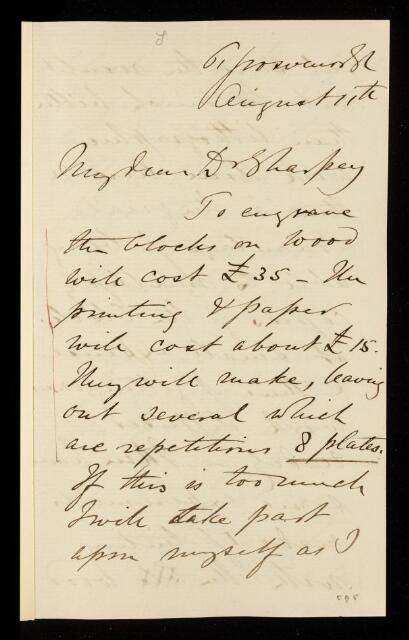 6 Grosvenor St
August 11th
My dear Dr Sharpey
To engrave
the blocks on wood
will cost £35 – the
printing & paper
will cost about £15.
They will make, leaving
out several which
are repetitions 8 plates.
If this is too much
I will take part
upon myself as I
595